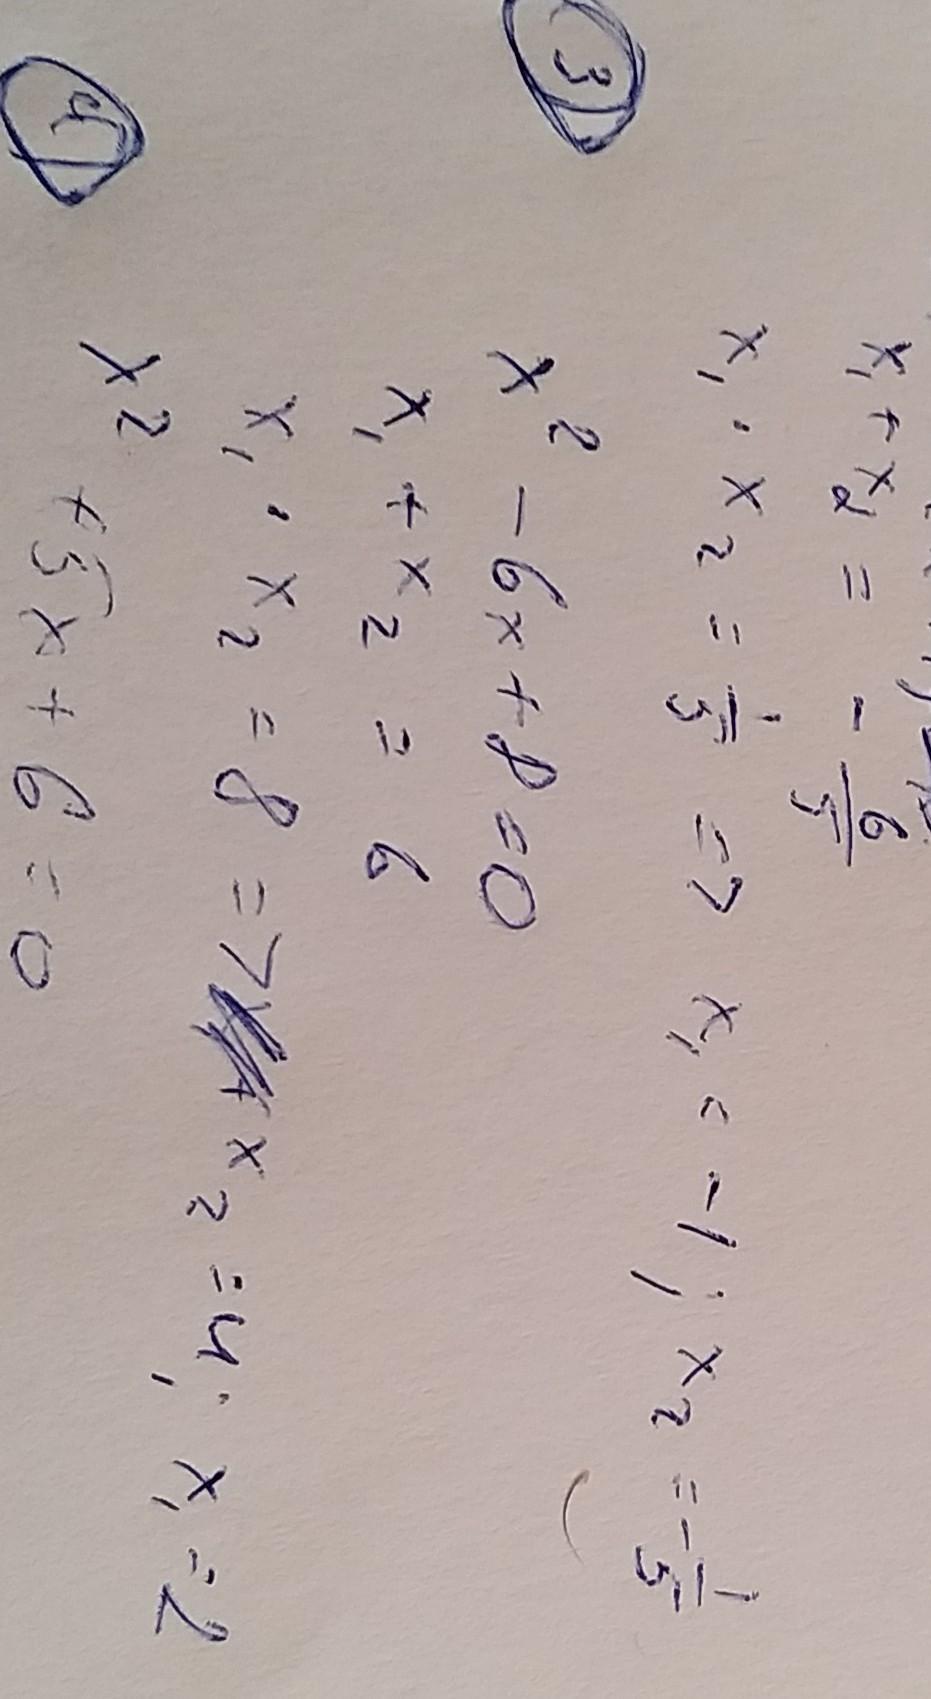 x₁ + x₂ = - 6/5
x₁ · x₂ = 1/5 => x₁ = -1; x₂ = -1/5
③ x² - 6x + 8 = 0
x₁ + x₂ = 6
x₁ · x₂ = 8 => x₂ = 4; x₁ = 2
④ x² + 5x + 6 = 0